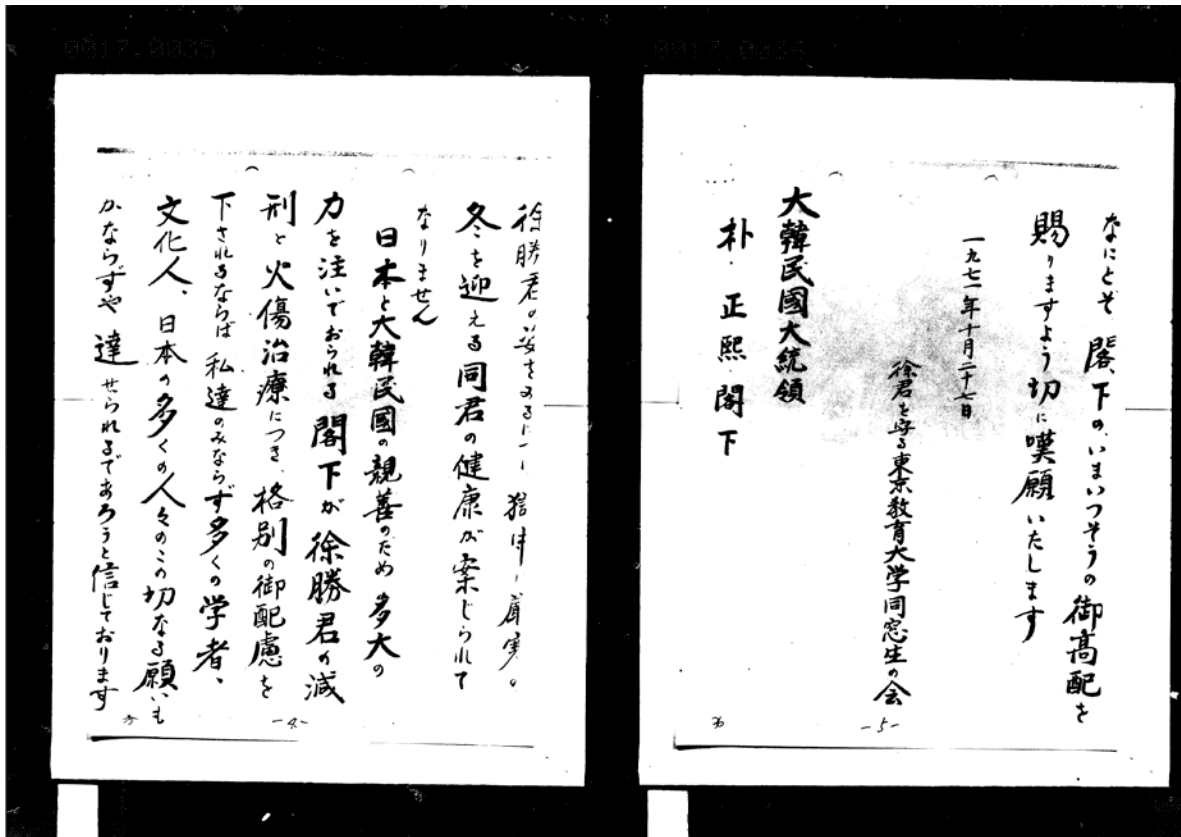 徐勝君の姿をみるに
冬を迎える同君の健康が案じられて
なりません
日本と大韓民國の親善のため多大の
力を注いでおられる閣下が徐勝君の減
刑と火傷治療につき、格別の御配慮を
下されるならば私達のみならず多くの学者、
文化人、日本の多くの人々のこの切なる願いも
かならずや達せられるであろうと信じております
-4-
なにとぞ閣下の、いまいつそうの御高配を
賜りますよう切に嘆願いたします
一九七一年十月二十七日
徐君を守る東京教育大学同窓生の会
大韓民國大統領
朴正熙閣下
-5-
0017.0035
0017.0034